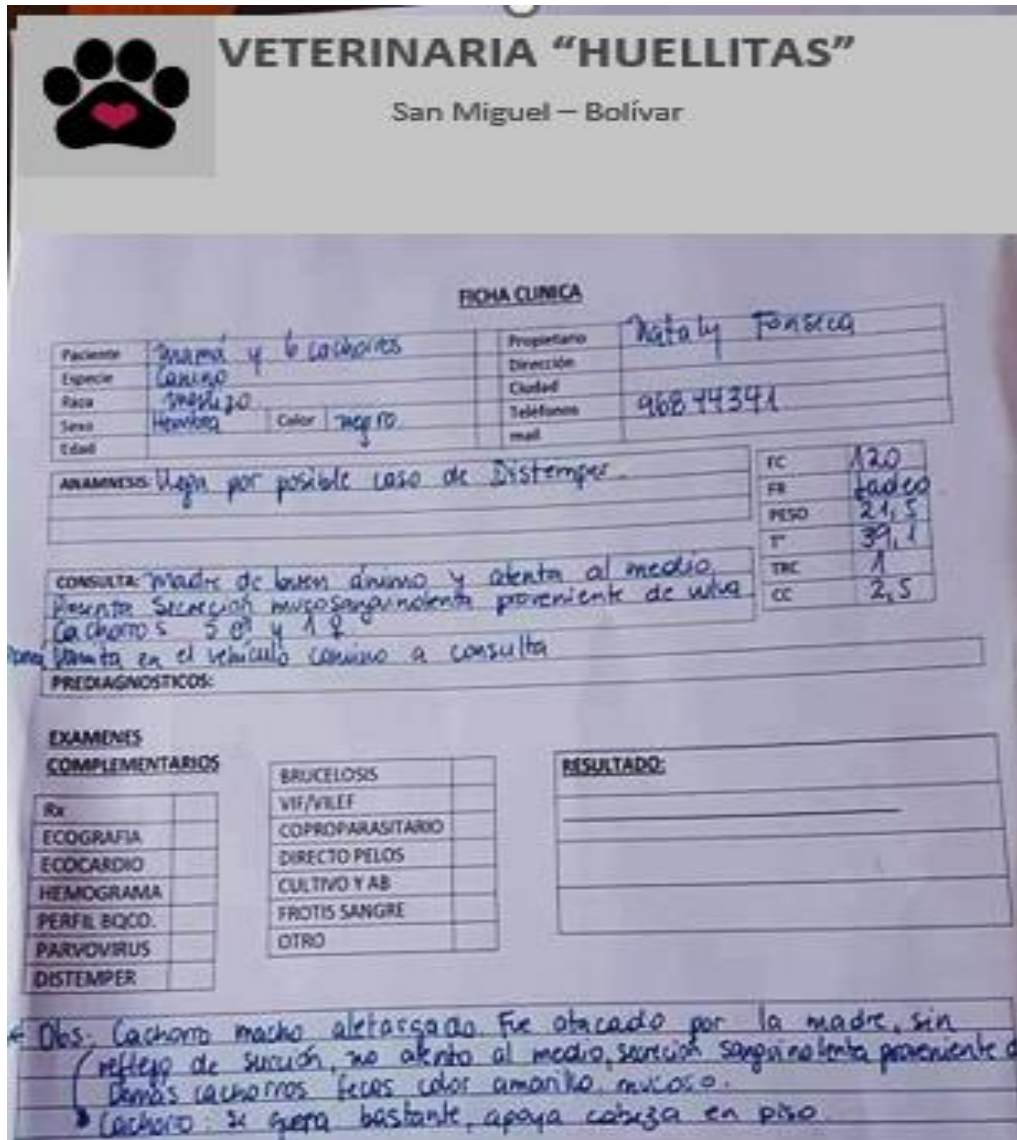 VETERINARIA “HUELLITAS”
San Miguel – Bolívar
FICHA CLINICA
Paciente mamá y 6 cachorros
Especie Canino
Raza mestizo
Sexo Hembra Color negro
Edad
Propietario Nataly Fonseca
Dirección
Ciudad
Teléfonos 96844341
mail
ANAMNESIS: Llega por posible caso de Distemper.
FC 120
FR Jadeo
PESO 21,5
T° 39,1
TRC 1
CC 2,5
CONSULTA: Madre de buen ánimo y atenta al medio.
Presenta Secreción mucosanguinolenta proveniente de vulva
Cachorros 5 ♂ y 1 ♀
vomita en el vehículo camino a consulta
PREDIAGNOSTICOS:
EXAMENES
COMPLEMENTARIOS
Rx
ECOGRAFIA
ECOCARDIO
HEMOGRAMA
PERFIL BQCO.
PARVOVIRUS
DISTEMPER
BRUCELOSIS
VIF/VILEF
COPROPARASITARIO
DIRECTO PELOS
CULTIVO Y AB
FROTIS SANGRE
OTRO
RESULTADO:
Obs: Cachorro macho aletargado. Fue atacado por la madre, sin
reflejo de succión, no atento al medio, secreción sanguinolenta proveniente d
Demás cachorros feces color amarillo mucoso.
Cachorro se queja bastante, apoya cabeza en piso